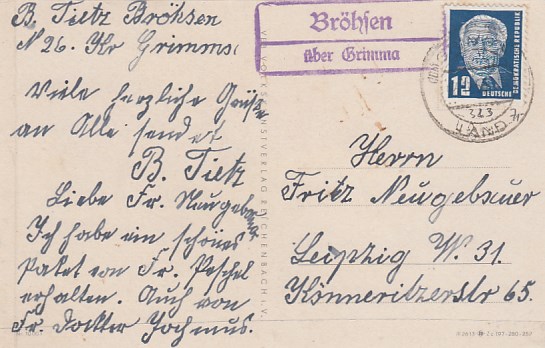 B. Tietz Bröhsen
N 26. Kr Grimma
Viele herzliche Grüße
an Alle sendet
B. Tietz
Liebe Fr. Neugebauer
Ich habe ein schönes
Paket von Fr. Peschel
erhalten. Auch von
Fr. Dockter Jochmus.
Bröhsen
über Grimma
12
DEUTSCHE
DEMOKRATISCHE REPUBLIK
Herrn
Fritz Neugebauer
Leipzig W. 31.
Könneritzerstr 65.
REICHENBACH i. V.